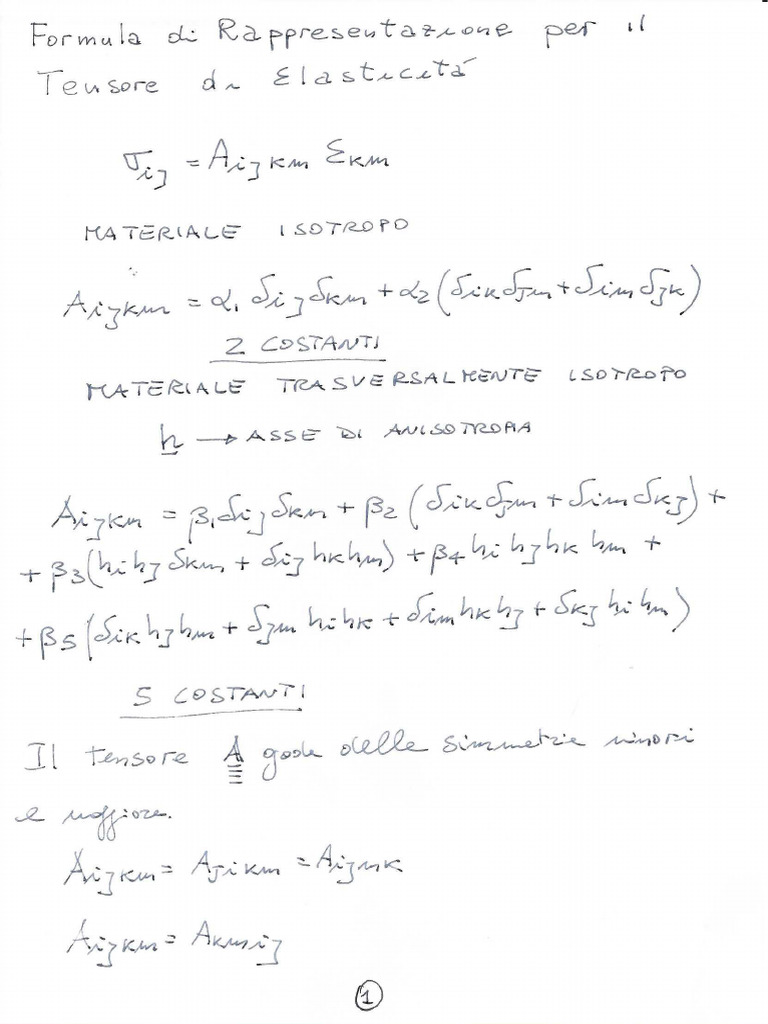 Formula di Rappresentazione per il
Tensore di Elasticitá
σij = Aijkm εkm
MATERIALE ISOTROPO
Aijkm = α1 δij δkm + α2 (δik δjm + δim δjk)
2 COSTANTI
MATERIALE TRASVERSALMENTE ISOTROPO
h → ASSE DI ANISOTROPIA
Aijkm = β1 δij δkm + β2 (δik δjm + δim δkj) +
+ β3 (hi hj δkm + δij hk hm) + β4 hi hj hk hm +
+ β5 (δik hj hm + δjm hi hk + δim hk hj + δkj hi hm)
5 COSTANTI
Il tensore A gode delle simmetrie minori
e maggiore.
Aijkm = Ajikm = Aijmk
Aijkm = Akmij
1